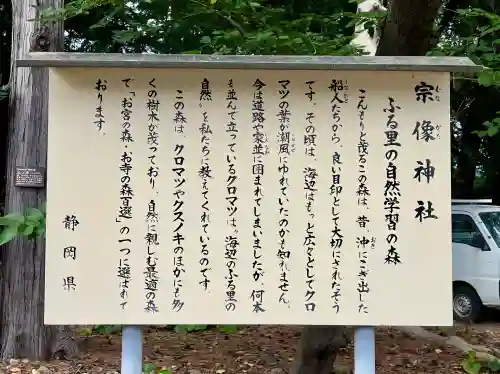 宗像神社
ふる里の自然学習の森
こんもりと茂るこの森は、昔、沖にこぎ出した
船人たちから、良い目印として大切にされたそう
です。その頃は、海辺はもっと広々としてクロ
マツの葉が潮風にゆれていたのかも知れません。
今は道路や家並に囲まれてしまいましたが、何本
も並んで立っているクロマツは、“海辺のふる里の
自然”を私たちに教えてくれているのです。
この森は、クロマツやクスノキのほかにも多
くの樹木が茂っており、自然に親しむ最適の森
で、「お宮の森・お寺の森百選」の一つに選ばれて
おります。
静岡県